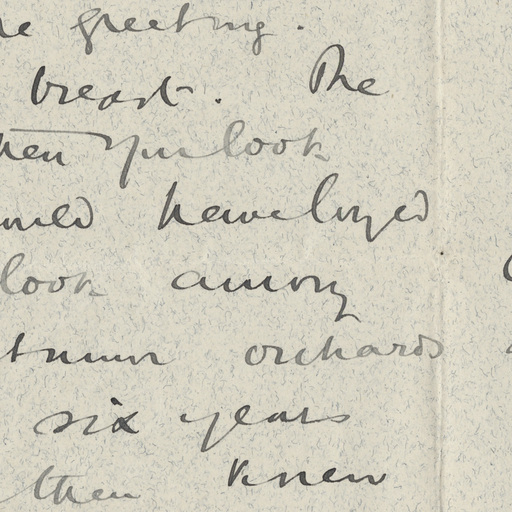 greeting.
breast. The
then you look
have loved
look among
autumn orchards
six years
then knew